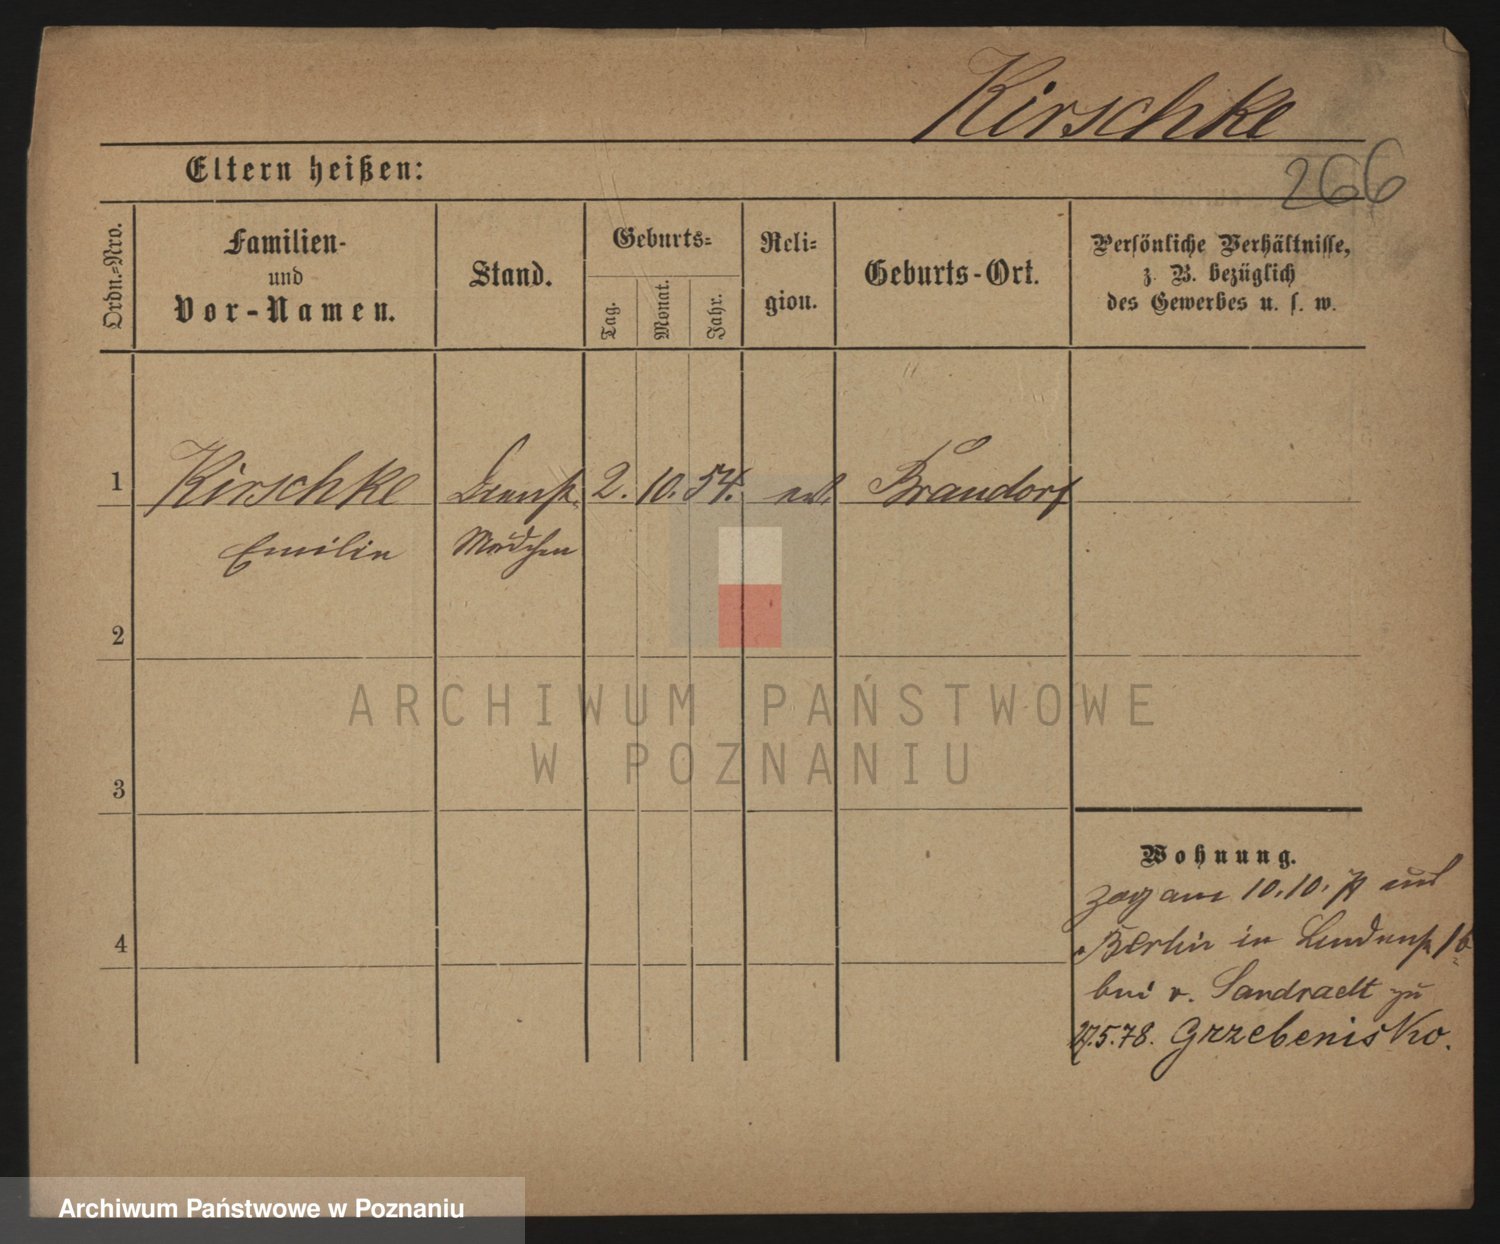 Kirschke
266
Eltern heißen:
Ordn.=Nro.
Familien-
und
Vor-Namen.
Stand.
Geburts=
Tag.
Monat.
Jahr.
Reli=
gion.
Geburts-Ort.
Persönliche Verhältnisse,
z. B. bezüglich
des Gewerbes u. s. w.
1 Kirschke Dienst 2. 10. 54. Braudorf
Emilie Mädchen
2
3
4
Wohnung.
zog am 10.10. aus
Berlin in Lindenstr 16
bei v. Sandradt zu
27.5.78. Grzebenisko.
ARCHIWUM PAŃSTWOWE
W POZNANIU
Archiwum Państwowe w Poznaniu